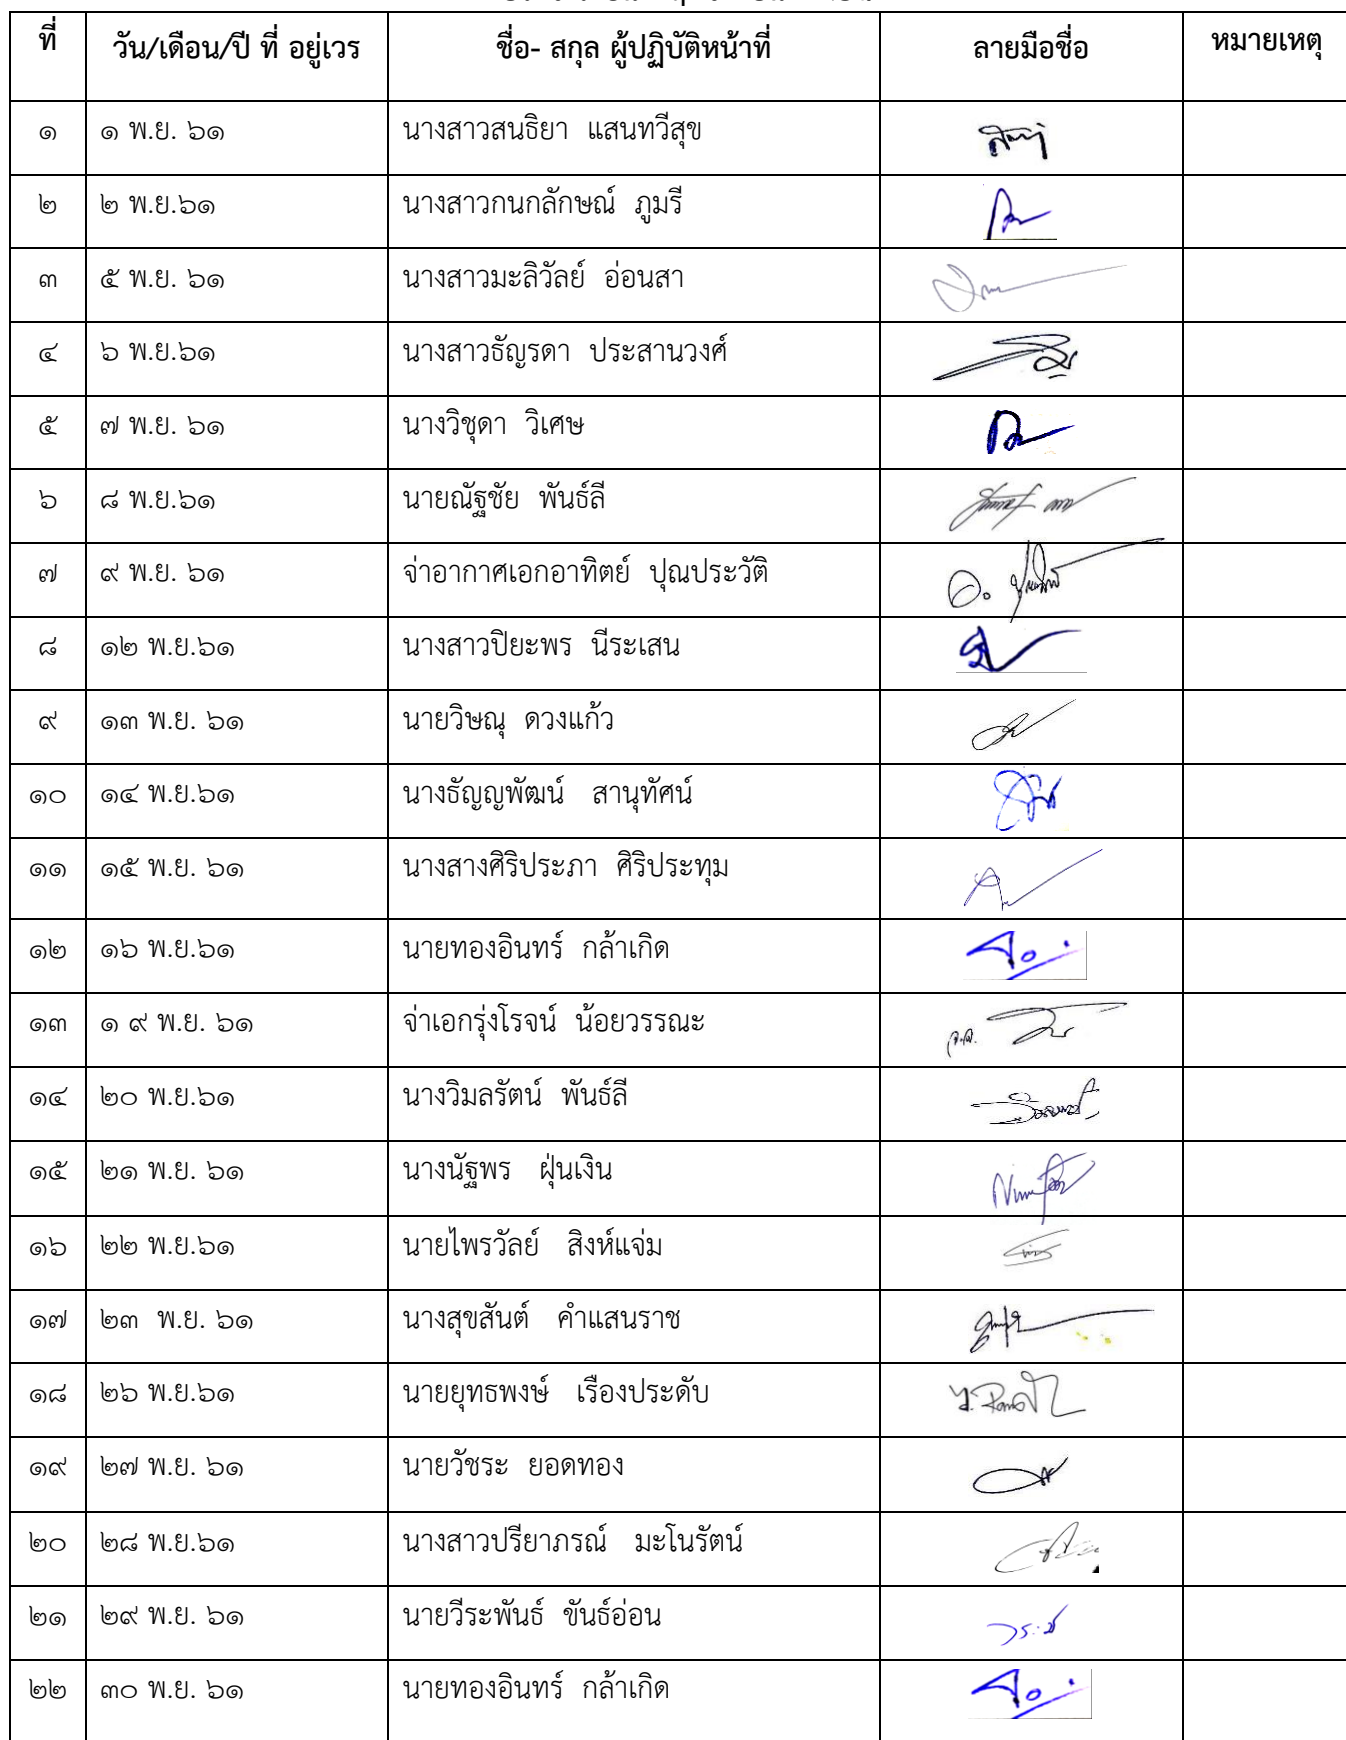 ที่ วัน/เดือน/ปี ที่ อยู่เวร ชื่อ- สกุล ผู้ปฏิบัติหน้าที่ ลายมือชื่อ หมายเหตุ
๑ ๑ พ.ย. ๖๑ นางสาวสนธิยา แสนทวีสุข
๒ ๒ พ.ย.๖๑ นางสาวกนกลักษณ์ ภูมรี
๓ ๕ พ.ย. ๖๑ นางสาวมะลิวัลย์ อ่อนสา
๔ ๖ พ.ย.๖๑ นางสาวธัญรดา ประสานวงศ์
๕ ๗ พ.ย. ๖๑ นางวิชุดา วิเศษ
๖ ๘ พ.ย.๖๑ นายณัฐชัย พันธ์ลี
๗ ๙ พ.ย. ๖๑ จ่าอากาศเอกอาทิตย์ ปุณประวัติ
๘ ๑๒ พ.ย.๖๑ นางสาวปิยะพร นีระเสน
๙ ๑๓ พ.ย. ๖๑ นายวิษณุ ดวงแก้ว
๑๐ ๑๔ พ.ย.๖๑ นางธัญญพัฒน์ สานุทัศน์
๑๑ ๑๕ พ.ย. ๖๑ นางสางศิริประภา ศิริประทุม
๑๒ ๑๖ พ.ย.๖๑ นายทองอินทร์ กล้าเกิด
๑๓ ๑ ๙ พ.ย. ๖๑ จ่าเอกรุ่งโรจน์ น้อยวรรณะ
๑๔ ๒๐ พ.ย.๖๑ นางวิมลรัตน์ พันธ์ลี
๑๕ ๒๑ พ.ย. ๖๑ นางนัฐพร ฝุ่นเงิน
๑๖ ๒๒ พ.ย.๖๑ นายไพรวัลย์ สิงห์แจ่ม
๑๗ ๒๓ พ.ย. ๖๑ นางสุขสันต์ คำแสนราช
๑๘ ๒๖ พ.ย.๖๑ นายยุทธพงษ์ เรืองประดับ
๑๙ ๒๗ พ.ย. ๖๑ นายวัชระ ยอดทอง
๒๐ ๒๘ พ.ย.๖๑ นางสาวปรียาภรณ์ มะโนรัตน์
๒๑ ๒๙ พ.ย. ๖๑ นายวีระพันธ์ ขันธ์อ่อน
๒๒ ๓๐ พ.ย. ๖๑ นายทองอินทร์ กล้าเกิด